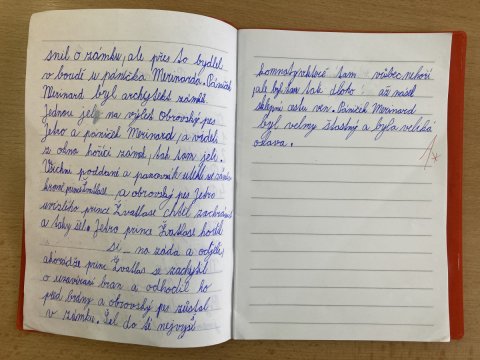 snil o zámku, ale přes to bydlel
v boudě u pánička Merinarda. Páníček
Merinard byl archytekt zámků.
Jednou jel na výlet obrovský pes
Jehro a páníček Merinard, a viděli
z okna hořící zámek, tak tam jeli.
Všichni poddaní a panovník utekli ze zámku
kromě prince Žvatlase, a obrovský pes Jehro
uviděl prince Žvatlase chtěl zachránit
a taky šel. Jehro prince Žvatlase
si na záda a odjeli,
princ Žvatlas se zachytil
o uzavírání bran a odhodil ho
před brány a obrovský pes zůstal
v zámku. Šel do té nejvyšší
komnaty, vůbec nehoří
ale byl tam tak dloho až našel
sklepní cestu ven. Páníček Merinard
byl velmy šťastný a byla veliká
oslava.
1*